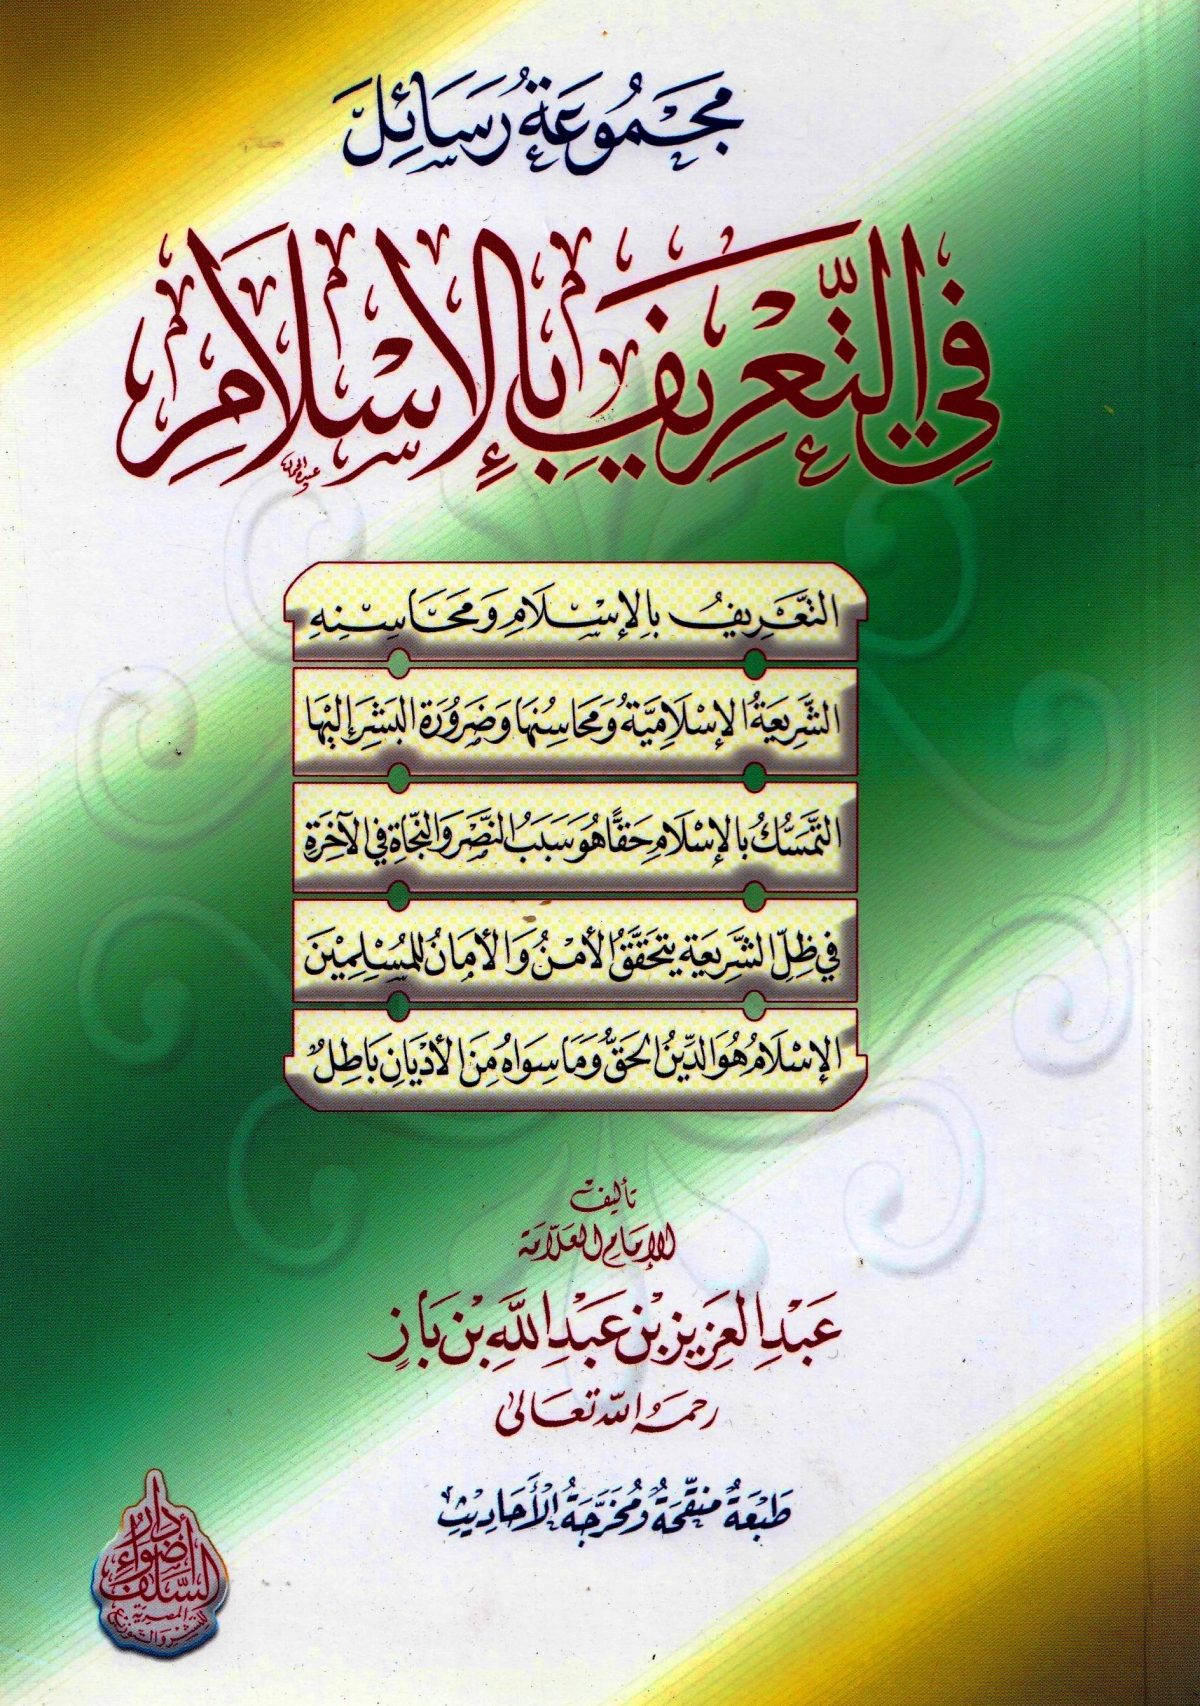 مَجْمُوعَةُ رَسَائِلَ
فِي التَّعْرِيفِ بِالإِسْلَامِ
التَّعْرِيفُ بِالإِسْلَامِ وَمَحَاسِنِهِ
الشَّرِيعَةُ الإِسْلَامِيَّةُ وَمَحَاسِنُهَا وَضَرُورَةُ البَشَرِ إِلَيْهَا
التَّمَسُّكُ بِالإِسْلَامِ حَقًّا هُوَ سَبَبُ النَّصْرِ وَالنَّجَاةِ فِي الآخِرَةِ
فِي ظِلِّ الشَّرِيعَةِ يَتَحَقَّقُ الأَمْنُ وَالأَمَانُ لِلْمُسْلِمِينَ
الإِسْلَامُ هُوَ الدِّينُ الحَقُّ وَمَا سِوَاهُ مِنَ الأَدْيَانِ بَاطِلٌ
تأليف
الإِمَامِ العَلَّامَة
عَبْدِ العَزِيزِ بْنِ عَبْدِ اللَّهِ بْنِ بَازٍ
رحمه الله تعالى
طَبْعَةٌ مُنَقَّحَةٌ وَمُخَرَّجَةُ الأَحَادِيثِ
دار
أضواء
السلف
المصرية
للنشر والتوزيع